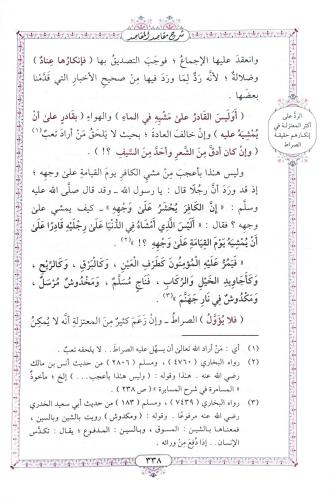 شرح مقاصد المقاصد
وانعقدَ عليها الإجماعُ ؛ فوجَبَ التصديقُ بها ( فإنكارُها عِنادٌ )
وضلالةٌ ؛ لأنَّه رَدٌّ لِمَا ورَدَ فيها مِنْ صحيحِ الأخبارِ التي قدَّمْنا
بعضَها .
الردُّ على
أكثرِ المعتزلةِ في
إنكارِهم حقيقةَ
الصراط
( أَوَليسَ القادرُ على مَشْيِهِ في الماءِ ) والهواءِ ( بقادرٍ على أنْ
يُمْشِيَهُ عليه ) وإنْ خالَفَ العادةَ ؛ بحيث لا يَلحَقُ مَنْ أرادَ تعبٌ(١)
( وإنْ كان أدقَّ مِنَ الشَّعرِ وأحدَّ مِنَ السَّيفِ ؟! ) .
وليس هذا بأعجبَ مِنْ مشيِ الكافرِ يومَ القيامةِ على وجهِهِ ؛
فقد ورَدَ أنَّ رجُلاً قال : يا رسولَ الله ـ وقد قال صلَّى الله عليه
وسلَّم : « إِنَّ الكَافِرَ يُحْشَرُ عَلَىٰ وَجْهِهِ » ـ كيف يمشي على
وجهِهِ ؟ فقال : « أَلَيْسَ الَّذِي أَمْشَاهُ فِي الدُّنْيَا عَلَىٰ رِجْلَيْهِ قَادِرًا عَلَىٰ
أَنْ يُمْشِيَهُ يَوْمَ القِيَامَةِ عَلَىٰ وَجْهِهِ ؟! »(٢) .
« فَيَمُرُّ عَلَيْهِ المُؤْمِنُونَ كَطَرْفِ العَيْنِ ، وَكَالبَرْقِ ، وَكَالرِّيْحِ ،
وَكَأَجَاوِيدِ الخَيْلِ وَالرِّكَابِ ، فَنَاجٍ مُسَلَّمٌ ، وَمَخْدُوشٌ مُرْسَلٌ ،
وَمَكْدُوشٌ فِي نَارِ جَهَنَّمَ »(٣) .
( فلا يُؤَوَّلُ ) الصراطُ ـ وإنْ زعَمَ كثيرٌ مِنَ المعتزلةِ أنَّه لا يُمكِنُ
(١) أي : مَنْ أراد الله تعالى أن يسهِّل عليه الصراط . . لا يلحقه تعبٌ .
(٢) رواه البخاري ( ٤٧٦٠ ) ، ومسلم ( ٢٨٠٦ ) من حديث أنس بن مالك
رضي الله عنه . هذا وقوله : ( وليس هذا بأعجب . . . ) إلخ ؛ مأخوذٌ
« المسامرة في شرح المسايرة » ( ص ٢٣٨ ) .
(٣) رواه البخاري ( ٧٤٣٩ ) ، ومسلم ( ١٨٣ ) من حديث أبي سعيد الخدري
رضي الله عنه مرفوعًا . وقوله : ( ومكدوش ) رويت بالشين وبالسين ،
فمعناها بالشين : المسوق ، وبالسين : المدفوع ؛ يقال : تكدَّس
الإنسان . . إذا دُفِعَ مِنْ ورائه .
٣٣٨